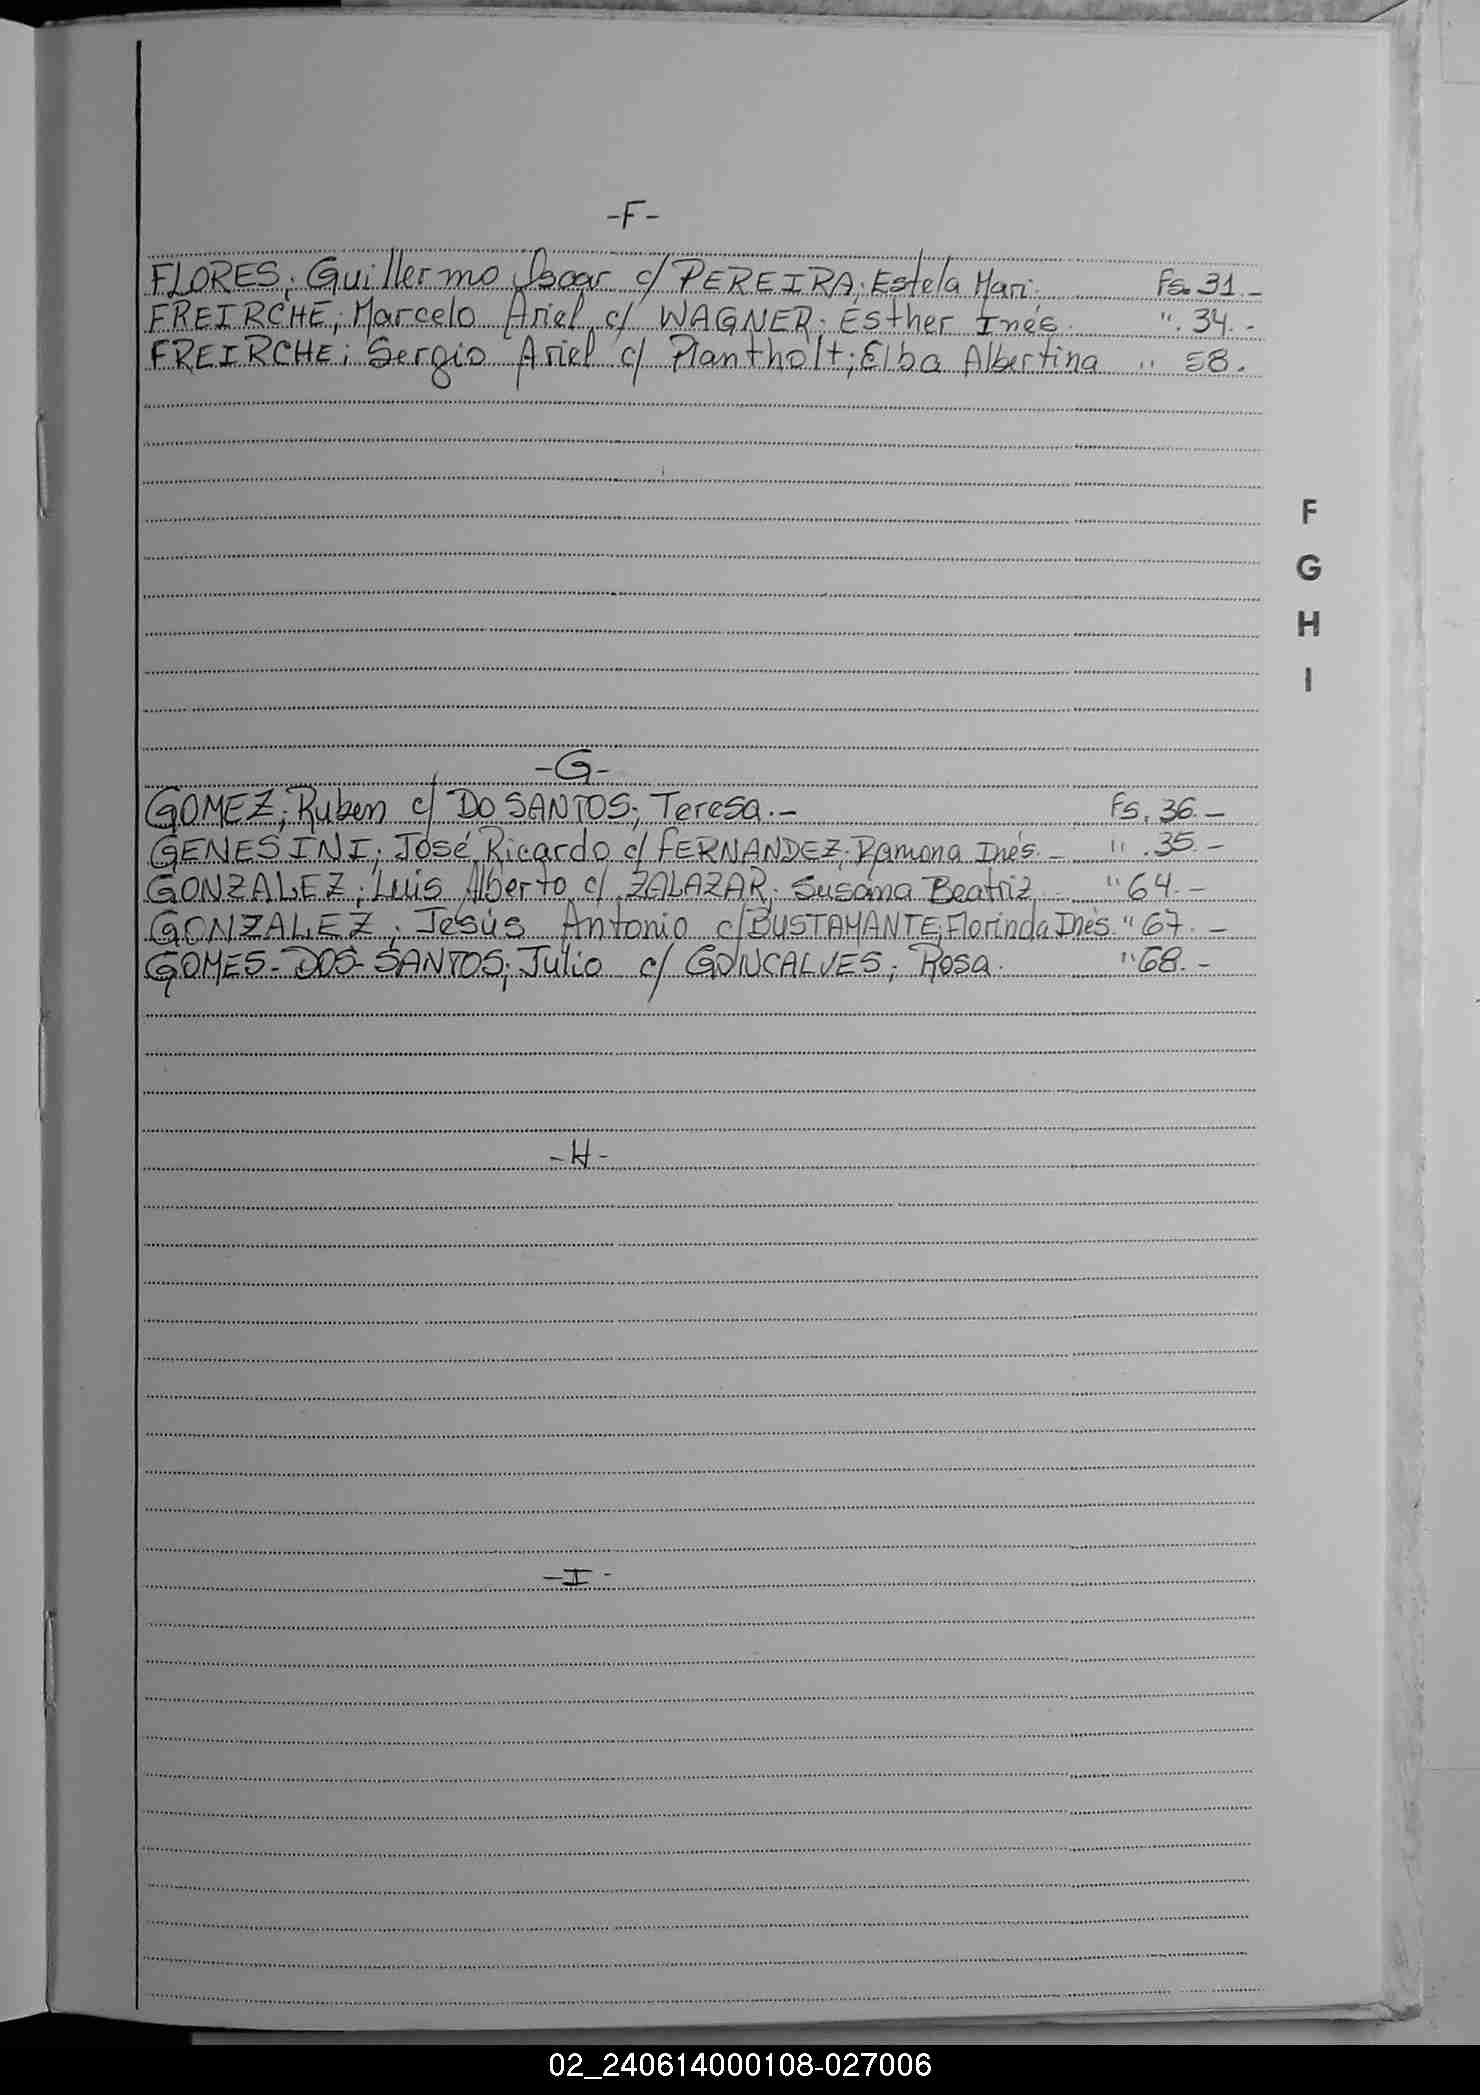 -F-
FLORES; Guillermo Oscar c/ PEREIRA; Estela Mari. Fs. 31.-
FREIRCHE; Marcelo Ariel c/ WAGNER; Esther Inés. ". 34.-
FREIRCHE; Sergio Ariel c/ Plantholt; Elba Albertina " 58.
F
G
H
I
-G-
GOMEZ; Ruben c/ DO SANTOS; Teresa.- Fs. 36.-
GENESINI; José Ricardo c/ FERNANDEZ; Ramona Inés.- " .35.-
GONZALEZ; Luis Alberto c/ ZALAZAR; Susana Beatriz " 64.-
GONZALEZ; Jesús Antonio c/ BUSTAMANTE; Florinda Inés. " 67.-
GOMES-DOS-SANTOS; Julio c/ GONCALVES; Rosa. " 68.-
-H-
-I-
02_240614000108-027006